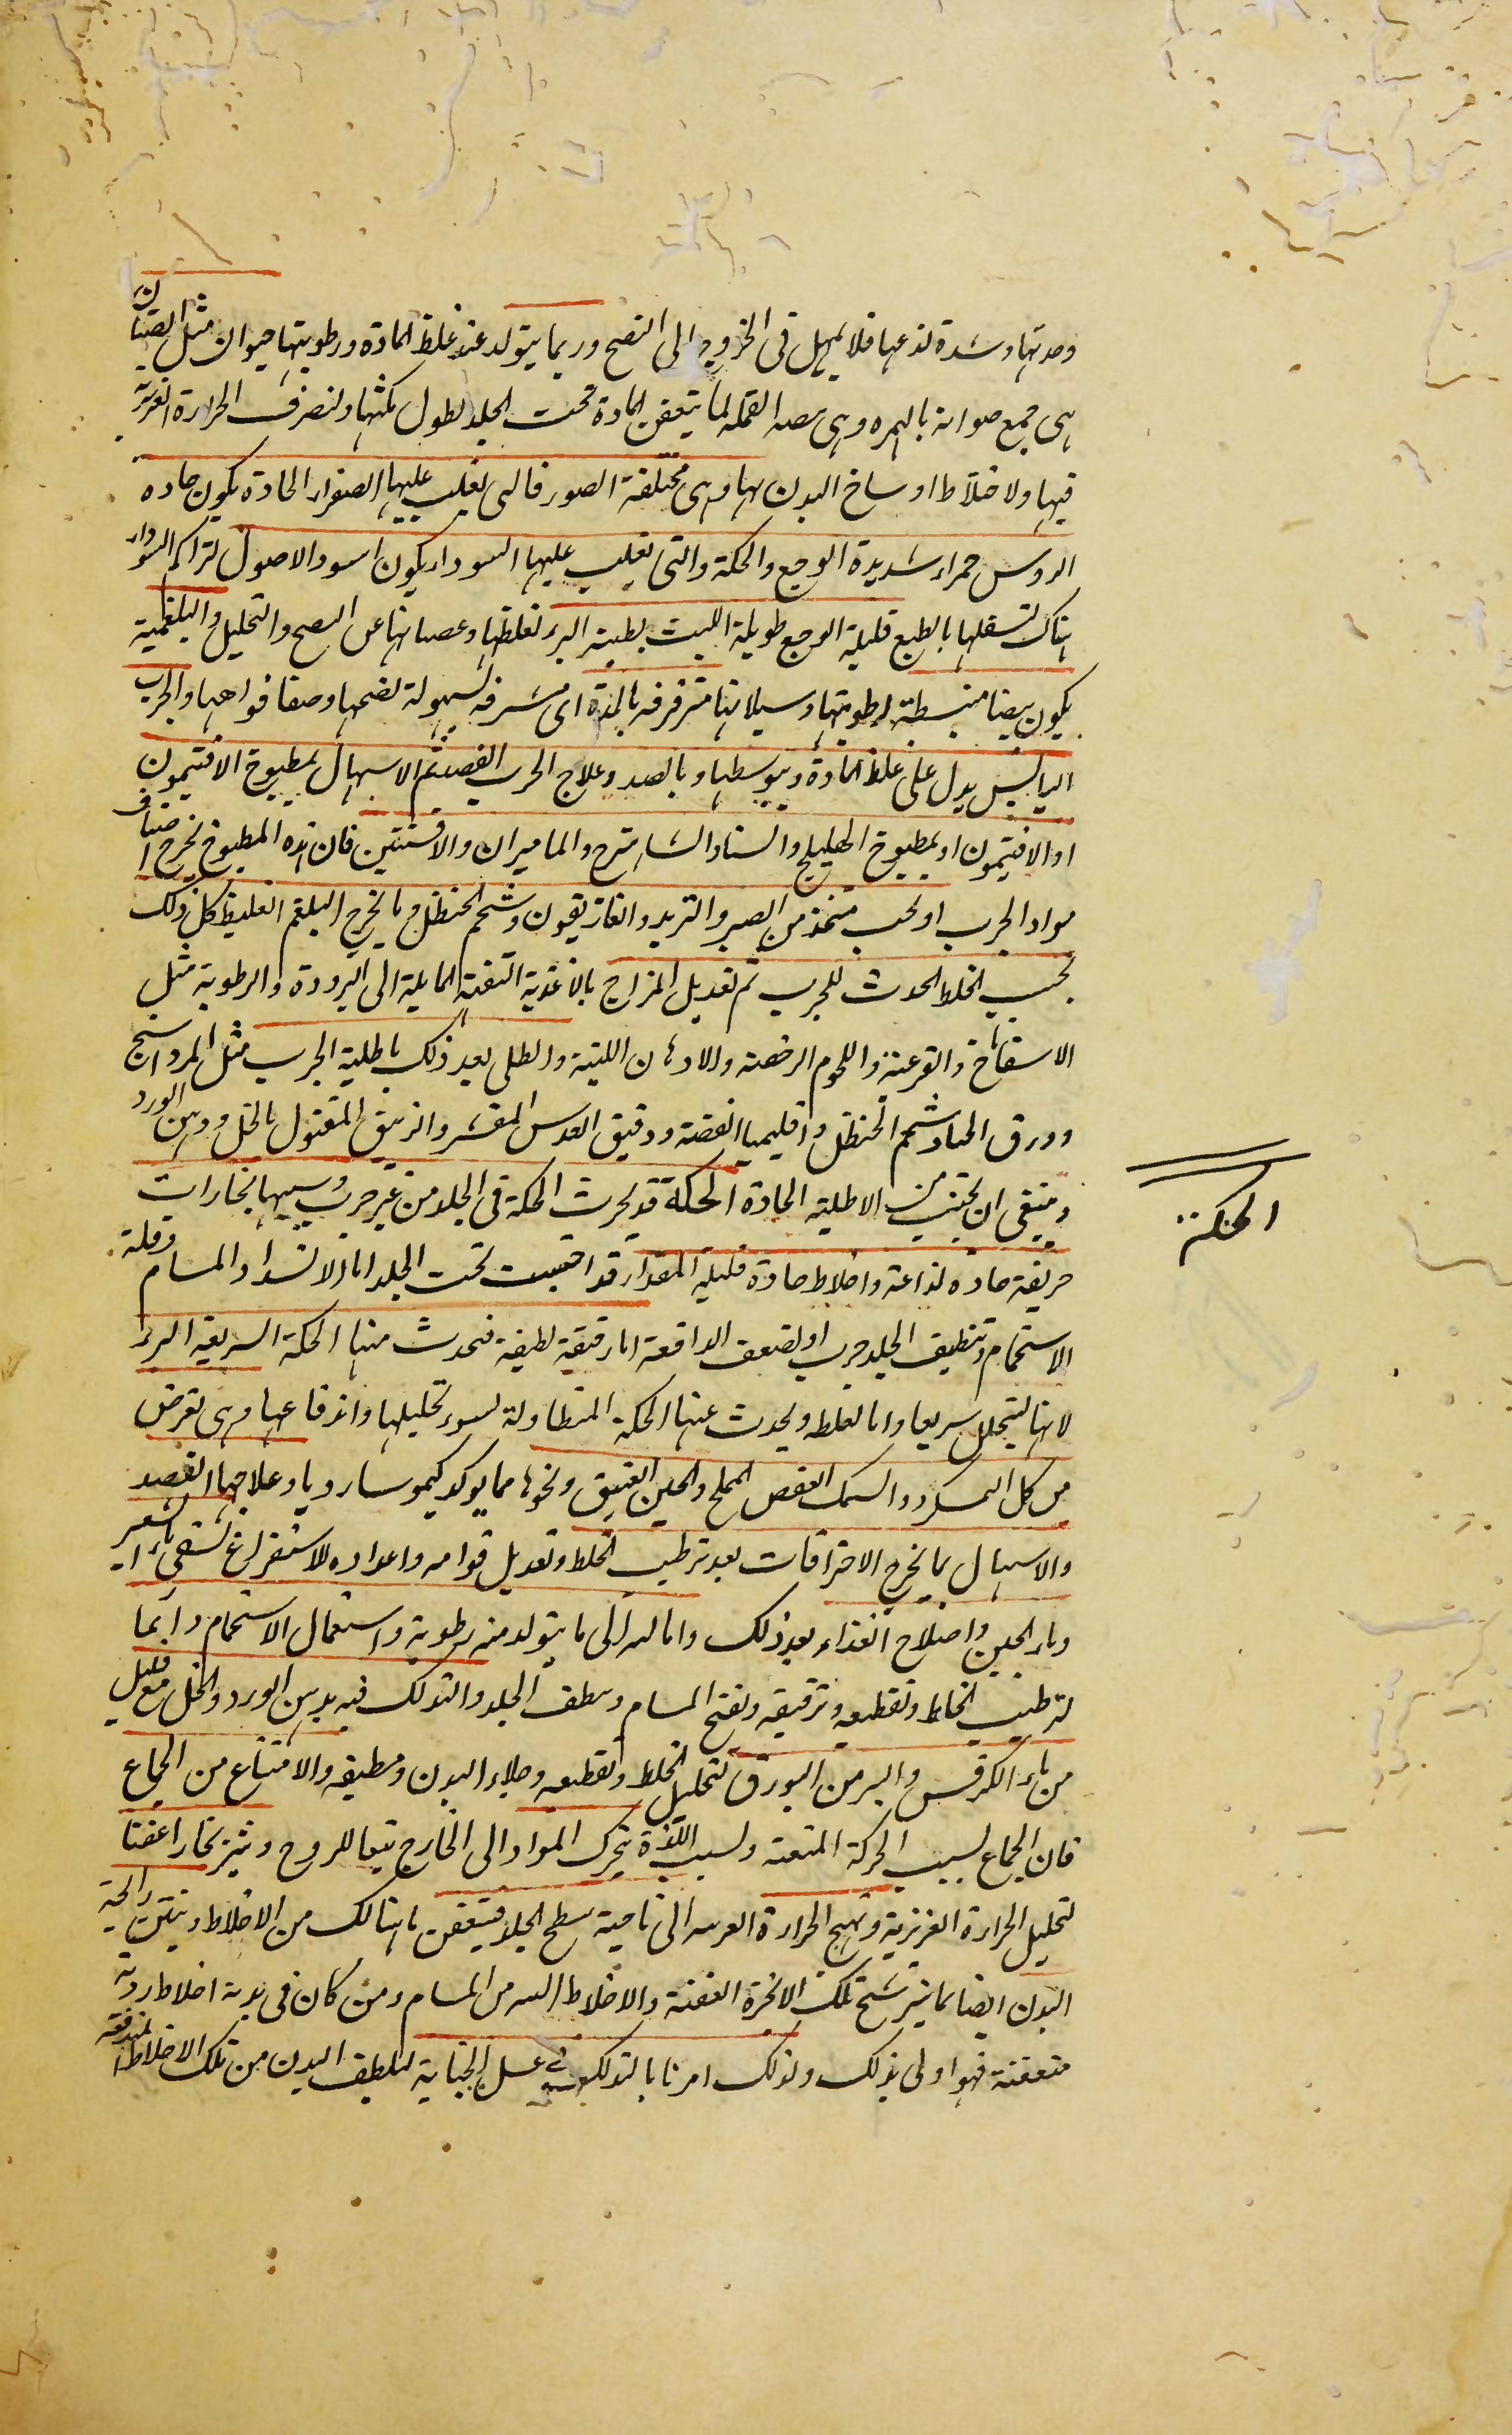 وحدتها وشدة لذعها فلا يمهل فى الخروج الى النضج وربما يتولد عند غلظ المادة ورطوبتها حيوان مثل الصئبان
هى جمع صوابة بالهمزه وهى بيضه القمله لما يتعفن المادة تحت الجلد لطول مكثها ولتصرف الحرارة الغريبة
فيها ولاختلاط اوساخ البدن بها وهى مختلفة الصور فالتى تغلب عليها الصفراء الحادة يكون حاده
الروس حمراء شديدة الوجع والحكة والتى تغلب عليها السوداء يكون اسود الاصول لتراكم السوداء
هناك لتسفلها بالطبع قليلة الوجع طويلة اللبث بطيئة البرء لغلظها وعصيانها عن النضج والتحليل والبلغمية
يكون بيضا منبسطة لرطوبتها وسيلانها مترقرقه بالمدة اى مشرفه لسهولة نضجها وصفا فواهها والجرب
اليابس يدل على غلظ المادة ويبوستها وبالضد وعلاج الجرب الفصد ثم الاسهال بمطبوخ الافتيمون
او الافتيمون او بمطبوخ الهليلج والسنا والشاهترج والماميران والافسنتين فان هذه المطبوخ يخرج اصناف
مواد الجرب او بحب متخذ من الصبر والتربد والغاريقون وشحم الحنظل وما يخرج البلغم الغليظ كل ذلك
بحسب الخلط المحدث للجرب ثم تعديل المزاج بالاغذية التفهة المايلة الى البرودة والرطوبة مثل
الاسفاناخ والقرعية واللحوم الرخصة والادهان اللينة والطلى بعد ذلك باطلية الجرب مثل المرداسنج
وورق الحناء وشحم الحنظل واقليميا الفضة ودقيق العدس المقشر والزيبق المقتول بالخل ودهن الورد
وينبغى ان يجتنب من الاطلية الحادة الحكة قد يحدث الحكة فى الجلد من غير جرب وسببها بخارات
حريفة حاده لذاعة واخلاط حادة قليلة المقدار قد احتبست تحت الجلد اما لانسداد المسام وقلة
الاستحمام وتنظيف الجلد جرب او لضعف الدافعة اما رقيقة لطيفة فيحدث منها الحكة السريعة البرء
لانها ليتحلل سريعا واما لغلظه ويحدث عنها الحكة المتطاولة لسوء تحليلها واندفاعها وهى تعرض
من كل المسكرد والسمك العفص المملح والجبن العتيق ونحوها مما يولد كيموسا رديا وعلاجها الفصد
والاسهال بما يخرج الاحتراقات بعد ترطيب الخلط وتعديل قوامه واعداده للاستفراغ بسقى ماء الشعير
وماء الجبن واصلاح الغذاء بعد ذلك وامالته الى ما يتولد منه رطوبة واستعمال الاستحمام دايما
لترطيب الخلط وتقطيعه وترقيقه وتفتح المسام وينظف الجلد والتدلك فيه بدهن الورد والخل مع قليل
من ماء الكرفس واليسير من البورق لتحليل الخلط وتقطيعه وجلاء البدن وتنظيفه والامتناع من الجماع
فان الجماع لسبب الحركة المتعبة ولسبب اللذة يحرك المواد الى الخارج تبعا للروح ويثير بخارا عفنا
لتحليل الحرارة الغريزية وتهيج الحرارة الغريبه الى ناحية سطح الجلد فيتعفن ما هنالك من الاخلاط وينتن رائحة
البدن ايضا بما يترشح تلك الابخرة العفنة والاخلاط اليه من المسام ومن كان فى بدنه اخلاط ردية
متعفنة فهو اولى بذلك ولذلك امرنا بالتدلك فى غسل الجنابة لتنظيف البدن من تلك الاخلاط المندفعة
الحكة